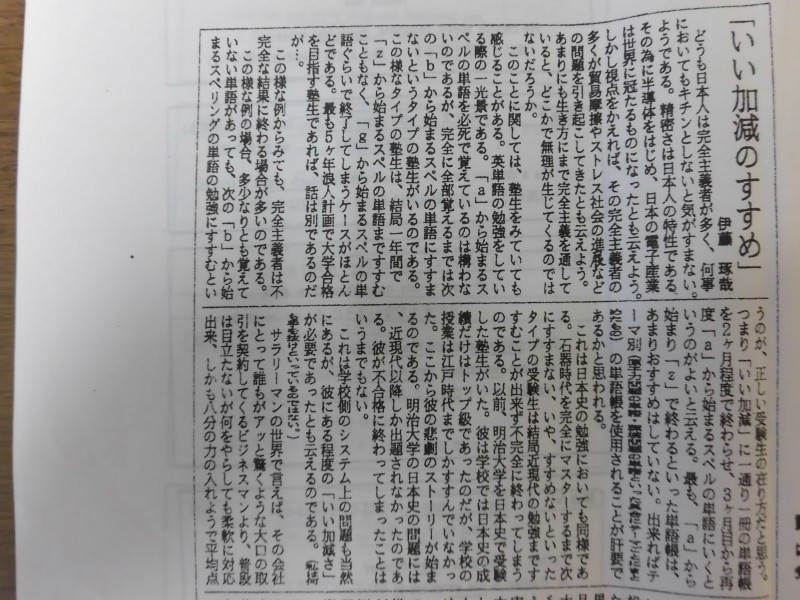 「いい加減のすすめ」
伊藤　琢哉
どうも日本人は完全主義者が多く、何事
においてもキチンとしないと気がすまない
ようである。精密さは日本人の特性である。
その為に半導体をはじめ、日本の電子産業
は世界に冠たるものになったとも云えよう。
しかし視点をかえれば、その完全主義者の
多くが貿易摩擦やストレス社会の進展など
の問題を引き起こしてきたとも云えよう。
あまりにも生き方にまで完全主義を通して
いると、どこかで無理が生じてくるのでは
ないだろうか。
このことに関しては、塾生をみていても
感じることがある。英単語の勉強をしてい
る際の一光景である。「ａ」から始まるス
ペルの単語を必死で覚えているのは構わな
いのであるが、完全に全部覚えるまでは次
の「ｂ」から始まるスペルの単語にすすま
ないというタイプの塾生がいるのである。
この様なタイプの塾生は、結局一年間で
「ｚ」から始まるスペルの単語まですすむ
こともなく、「ｇ」から始まるスペルの単
語ぐらいで終了してしまうケースがほとん
どである。最も５ヶ年浪人計画で大学合格
を目指す塾生であれば、話は別であるのだ
が…。
この様な例からみても、完全主義者は不
完全な結果に終わる場合が多いのである。
この様な例の場合、多少なりとも覚えて
いない単語があっても、次の「ｂ」から始
まるスペリングの単語の勉強にすすむとい
うのが、正しい受験生の在り方だと思う。
つまり「いい加減」に一通り一冊の単語帳
を２ヶ月程度で終わらせ、３ヶ月目から再
度「ａ」から始まるスペルの単語にいくと
いうのがよいと云える。最も、「ａ」から
始まり「ｚ」で終わるといった単語帳は、
あまりおすすめはしていない。出来ればテ
ーマ別
の単語帳を使用されることが肝要で
あるかと思われる。
これは日本史の勉強においても同様であ
る。石器時代を完全にマスターするまで次
にすすまない、いや、すすめないといった
タイプの受験生は結局近現代の勉強まです
すむことが出来ず不完全に終わってしまう
のである。以前、明治大学を日本史で受験
した塾生がいた。彼は学校では日本史の成
績だけはトップ級であったのだが、学校の
授業は江戸時代までしかすすんでいなかっ
た。ここから彼の悲劇のストーリーが始ま
るのである。明治大学の日本史の問題には
、近現代以降しか出題されなかったのであ
る。彼が不合格に終わってしまったことは
いうまでもない。
これは学校側のシステム上の問題も当然
にあるが、彼にある程度の「いい加減さ」
が必要であったとも云えるのである。
サラリーマンの世界で言えば、その会社
にとって誰もがアッと驚くような大口の取
引を契約してくるビジネスマンより、普段
は目立たないが何をやらしても柔軟に対応
出来、しかも八分の力の入れようで平均点